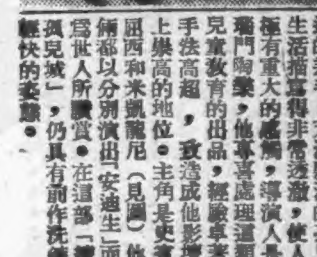 生活描寫得非常透澈，使人
極有重大的感觸，導演人是
瑙門陶樂，他專喜處理這類
兒童教育的出品，經驗卓
手法高超，致造成他影壇
上崇高的地位。主角是史賓
屈西和米凱龍尼（見圖）他
倆都以分別演出「安迪生」而
爲世人所讚賞。在這部「
孤兒城」，仍具有前作洗
輕快的姿態。